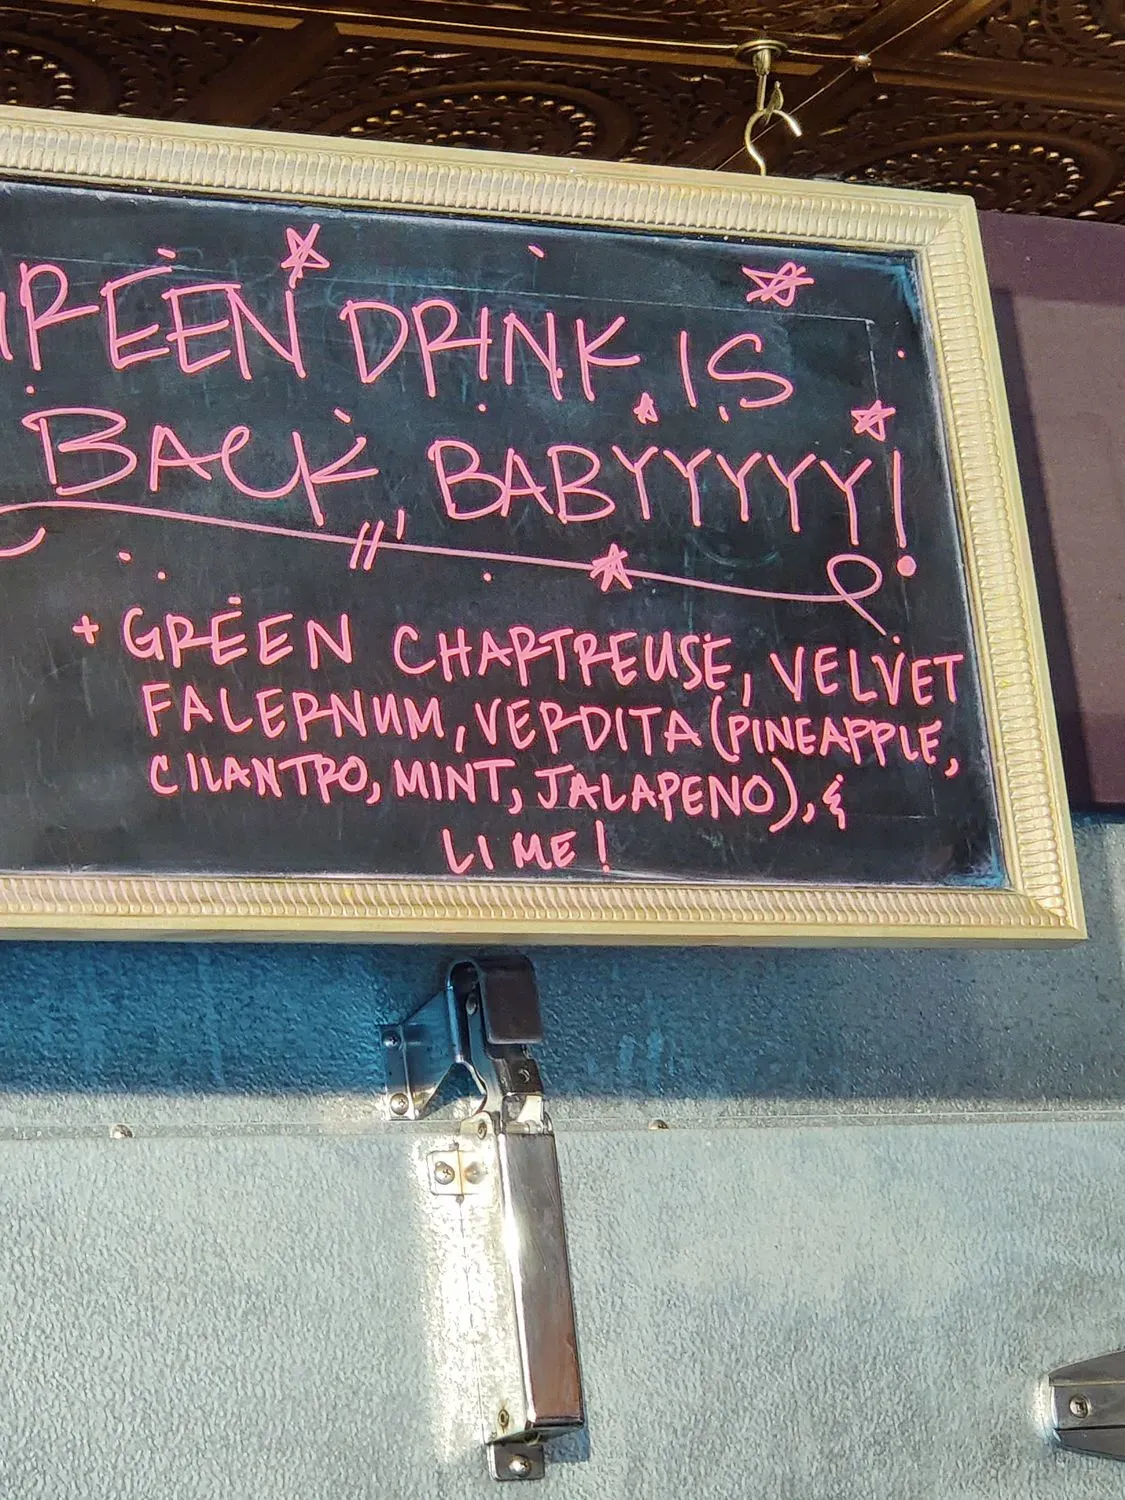 GREEN DRINK IS
BACK BABYYYYY!
+ GREEN CHARTREUSE, VELVET
FALERNUM, VERDITA (PINEAPPLE,
CILANTRO, MINT, JALAPENO), &
LIME!